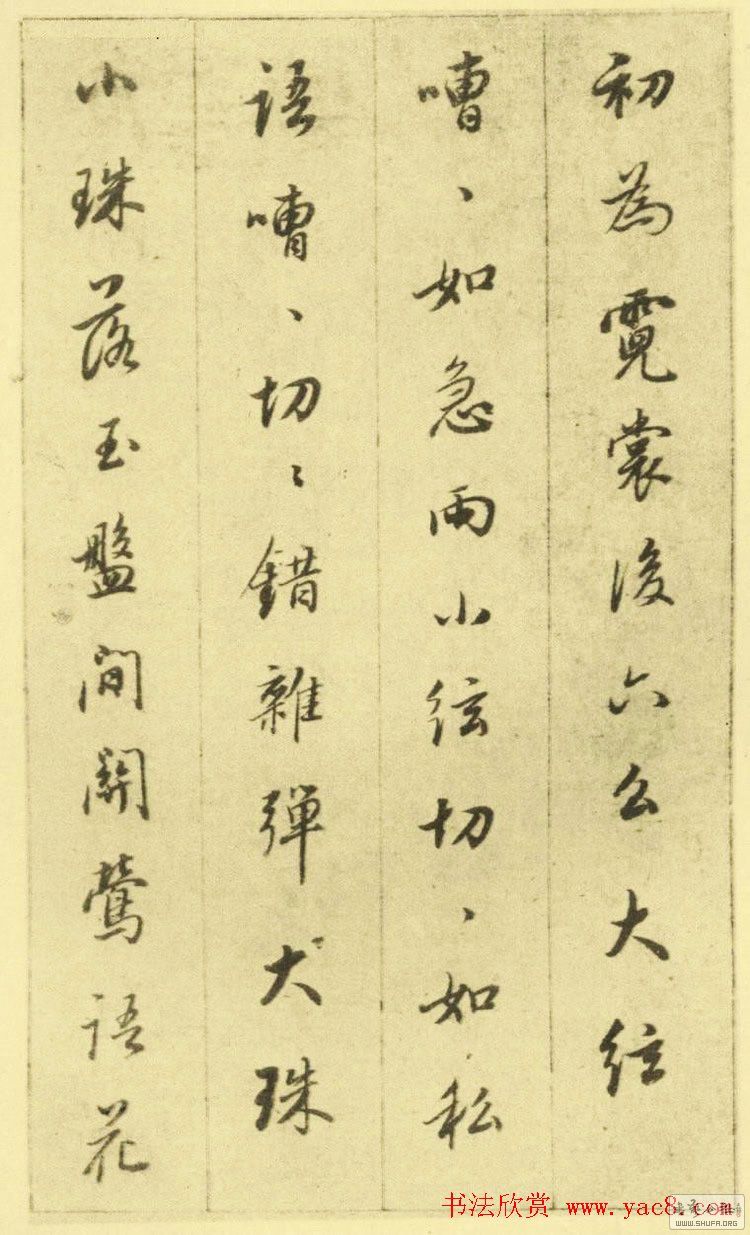 初為霓裳後六幺大絃
嘈、如急雨小絃切、如私
語嘈、切〻錯雜彈大珠
小珠落玉盤間關鶯語花
书法欣赏 www.yac8.com
WWW.SHUFA.ORG